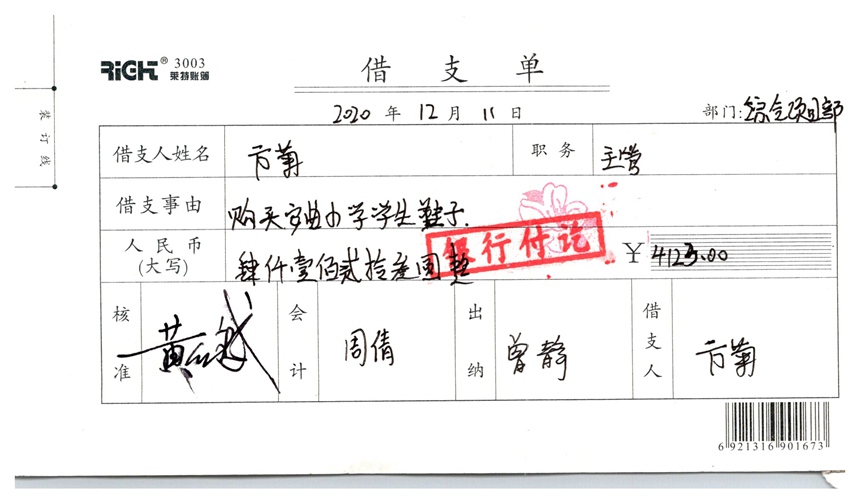 RiGHT® 3003
莱特账簿
借支单
2020 年 12 月 11 日 部门:综合项目部
装订线
借支人姓名 方菊 职务 主管
借支事由 购买安曲小学学生鞋子.
人民币(大写) 肆仟壹佰贰拾叁圆整 ¥ 4123.00
银行付讫
核准 会计 周倩 出纳 曾静 借支人 方菊
6 921316 901673